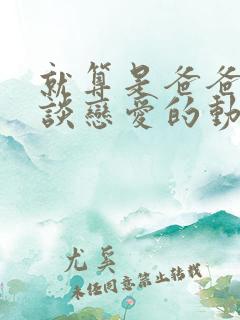 就算是爸爸
談戀愛的動
尤奚
未經同意禁止轉載